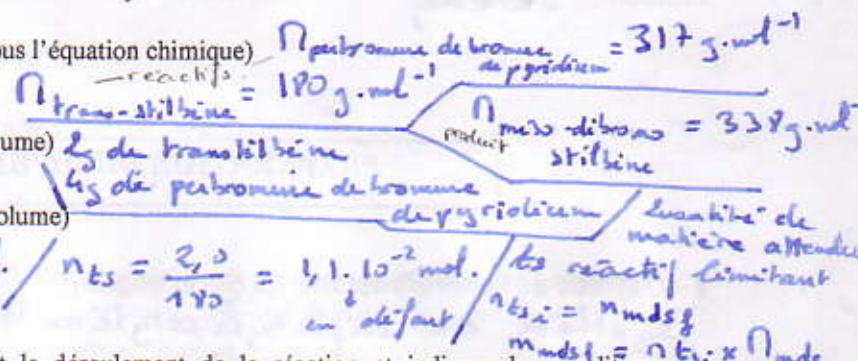 ous l'équation chimique) M perbromure de bromure de pyridium = 317 g.mol⁻¹
réactifs
M trans-stilbène = 180 g.mol⁻¹
M méso-dibromo stilbène = 338 g.mol
produit
ume) 2g de transtilbène
4g de perbromure de bromure de pyridium
olume)
Quantité de matière attendue
n ts = 2,0 / 180 = 1,1.10⁻² mol.
en défaut
ts réactif limitant
n ts,i = n mds f
m mds f = n ts,i x M mds
t le déroulement de la réaction et indiquer